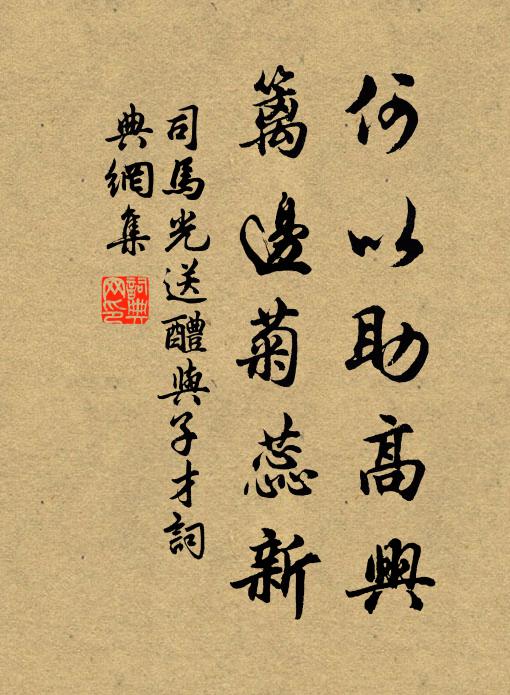 何以助高興
籬邊菊蕊新
司馬光送醴與子才詞
典網集
詞典
网印